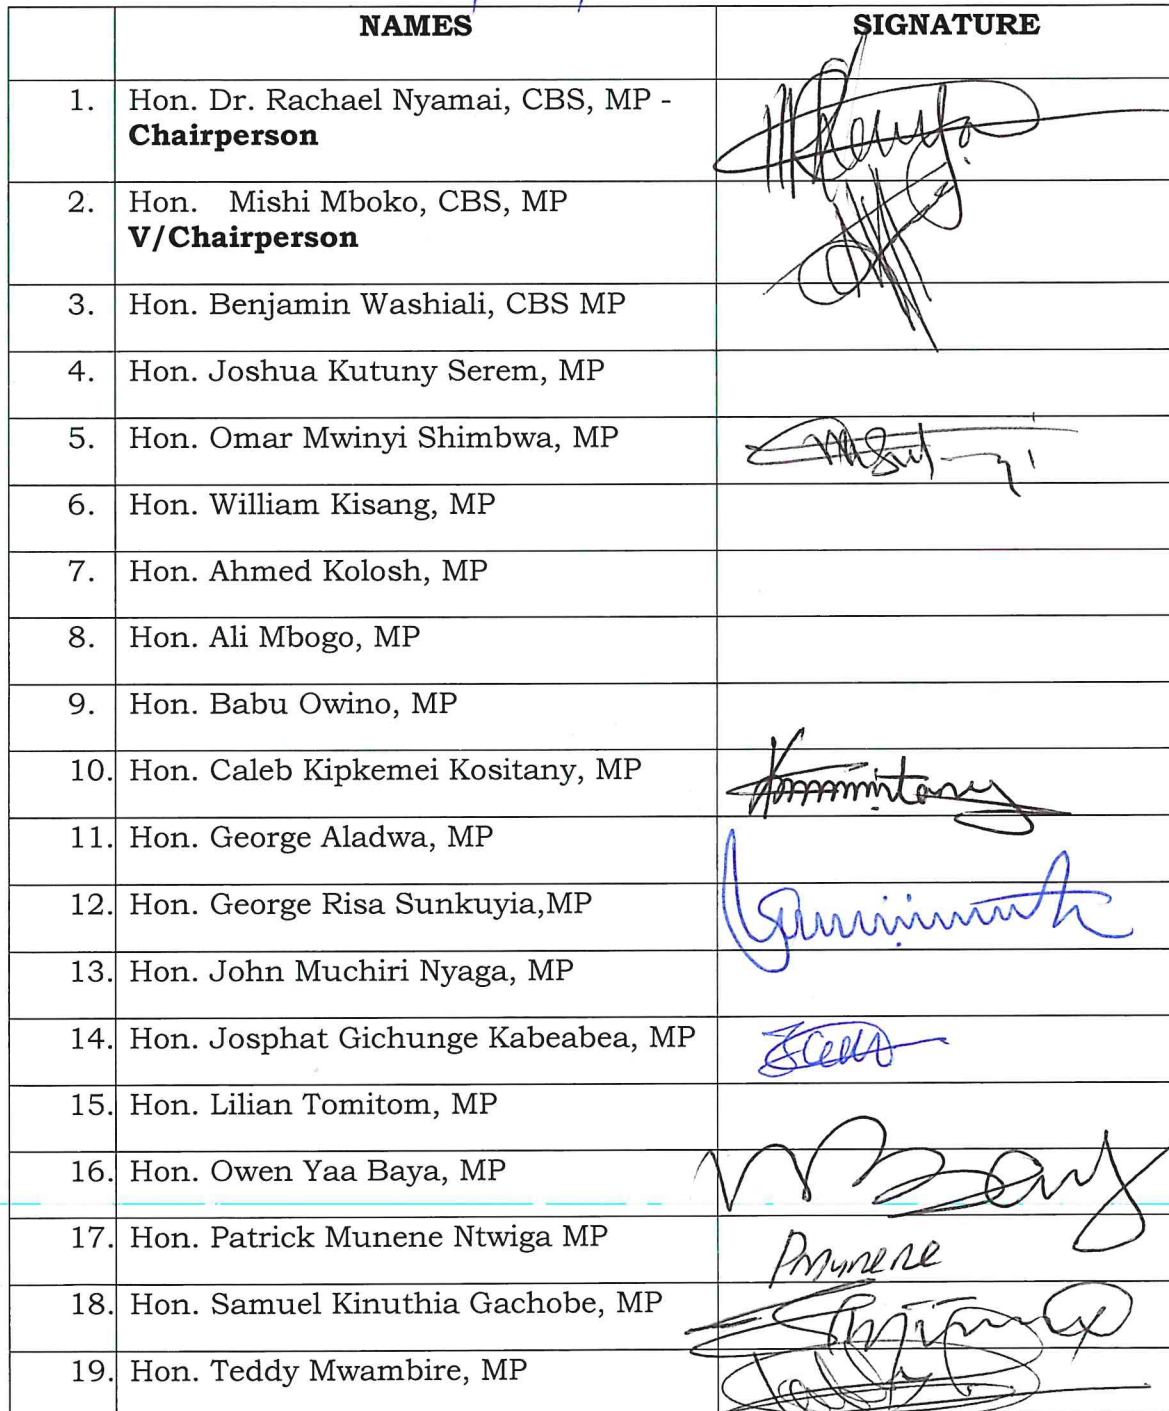 NAMES SIGNATURE
1. Hon. Dr. Rachael Nyamai, CBS, MP -
Chairperson
2. Hon. Mishi Mboko, CBS, MP
V/Chairperson
3. Hon. Benjamin Washiali, CBS MP
4. Hon. Joshua Kutuny Serem, MP
5. Hon. Omar Mwinyi Shimbwa, MP
6. Hon. William Kisang, MP
7. Hon. Ahmed Kolosh, MP
8. Hon. Ali Mbogo, MP
9. Hon. Babu Owino, MP
10. Hon. Caleb Kipkemei Kositany, MP
11. Hon. George Aladwa, MP
12. Hon. George Risa Sunkuyia,MP
13. Hon. John Muchiri Nyaga, MP
14. Hon. Josphat Gichunge Kabeabea, MP
15. Hon. Lilian Tomitom, MP
16. Hon. Owen Yaa Baya, MP
17. Hon. Patrick Munene Ntwiga MP PMunene
18. Hon. Samuel Kinuthia Gachobe, MP
19. Hon. Teddy Mwambire, MP